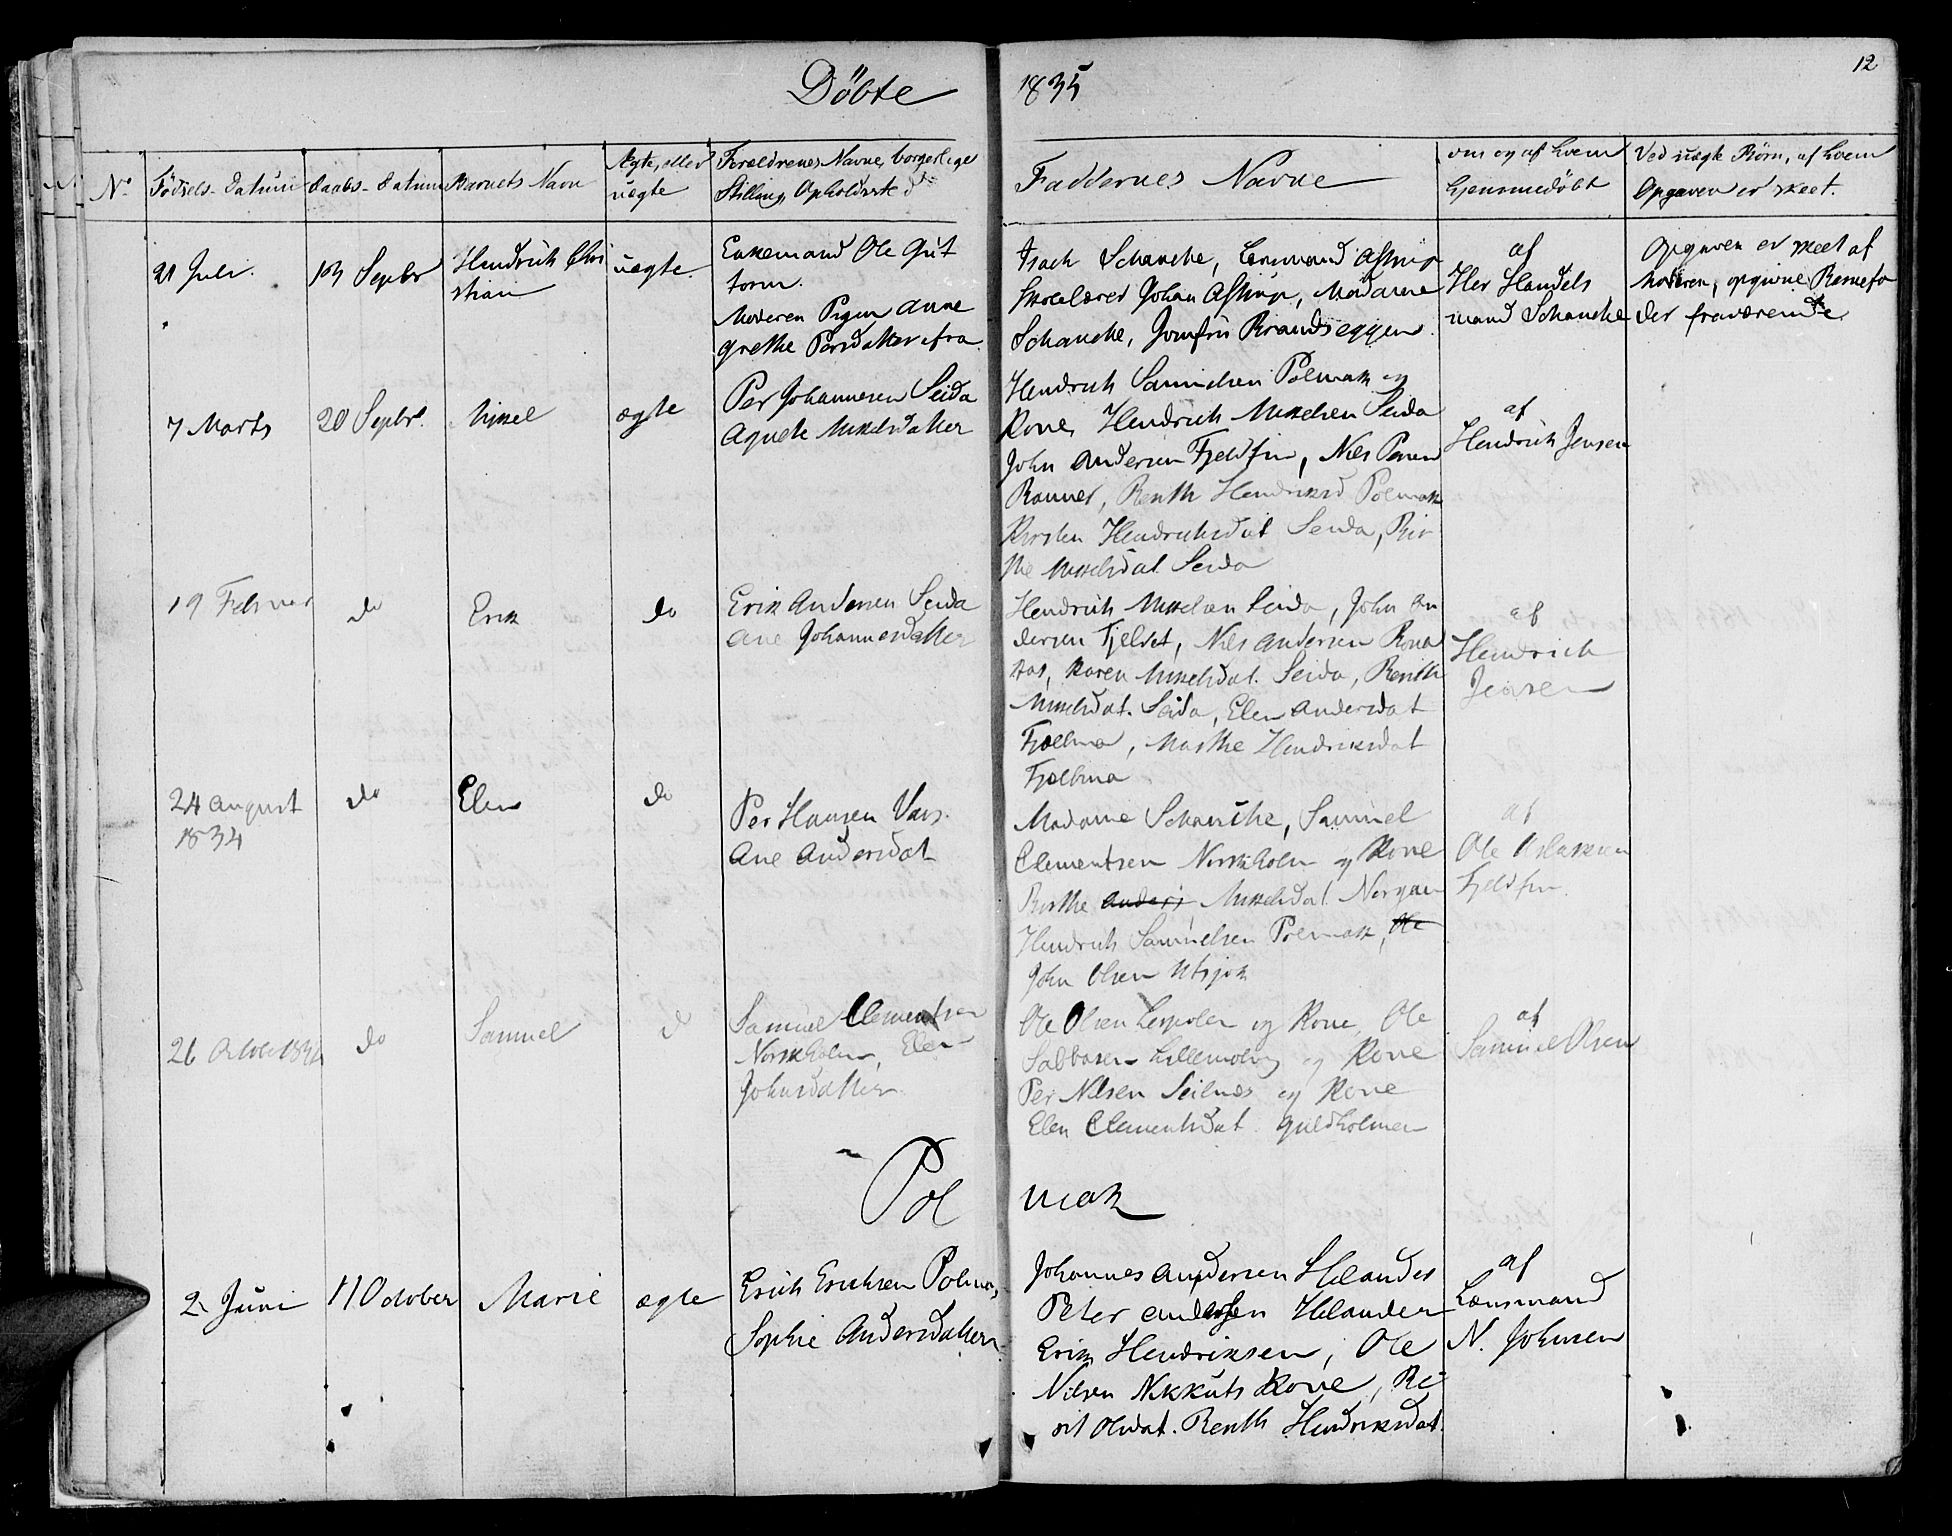 Döbte 1835
12
No
Födsels-Datum
Daabs-Datum
Barnets Navn
Ægte, eller
uægte
Forældrenes Navne, borgerlige
Stilling, Opholdssted
Faddernes Navne
om og af hvem
hjemmedöbt
Ved uægte Börn, af hvem
Opgaven er skeet.
21 Juli.
13 Septbr
Hendrich Chri
stian
uægte
Enkemand Ole Gut
torm.
Moderen Pigen Anne
Grethe Persdatter fra
Isach Schanche, Lensmand Astrup
Skolelærer Johan Astrup, Madame
Schanche, Jomfru Brandseggen
af
Her Handels
mand Schanche
Opgaven er skeet af
Moderen, opgivne Barnefa
der fraværende
7 Marts
20 Septbr.
Mikkel
ægte
Per Johannesen Seida
Agnete Mikkelsdatter
Hendrich Samuelsen Polmak og
Kone, Hendrich Mikkelsen Seida
John Andersen Fjeldfin, Nils Persen
Berith Hendriksd Polmak
Kirsten Hendrichsdat Seida, Bir
the Mikkelsdat. Seida
af
Hendrich Jensen
19 Februar
do
Erik
do
Erik Andersen Seida
Ane Johannesdatter
Hendrich Mikkelsen Seida, John An
dersen Fjeldet, Nils Andersen
Karen Mikkelsdat. Seida, Berith
Mikkelsdat. Seida, Elen Andersdat
Fjælma, Marthe Hendriksdat
Fjælma
af
Hendrich
Jensen
24 August
1834
do
Elen
do
Per Hansen
Ane Andersdat
Madame Schanche, Samuel
Clementsen Norskholm og Kone
Birthe Anders Mikkelsdat.
Hendrich Samuelsen Polmak, Ole
John Olsen Utsjok
af
Ole
Fjeldfin.
26 Octobr 1834
do
Samuel
do
Samuel Clementsen
Norskholm, Elen
Johnsdatter
Ole Olsen og Kone, Ole
og Kone
Per Nilsen Seilnæs og Kone
Elen Clementsdat. Guldholmen
af
Samuel Olsen
Pol mak
2 Juni
11 October
Marie
ægte
Erich Erichsen Polmak,
Sophie Andersdatter
Johannes Andersen Helander
Peter Andersen Helander
Erik Hendriksen, Ole
Nilsen Nikkuts Kone, Be
rit Olsdat. Berith Hendriksdat.
af
Lænsmand
N. Johnsen